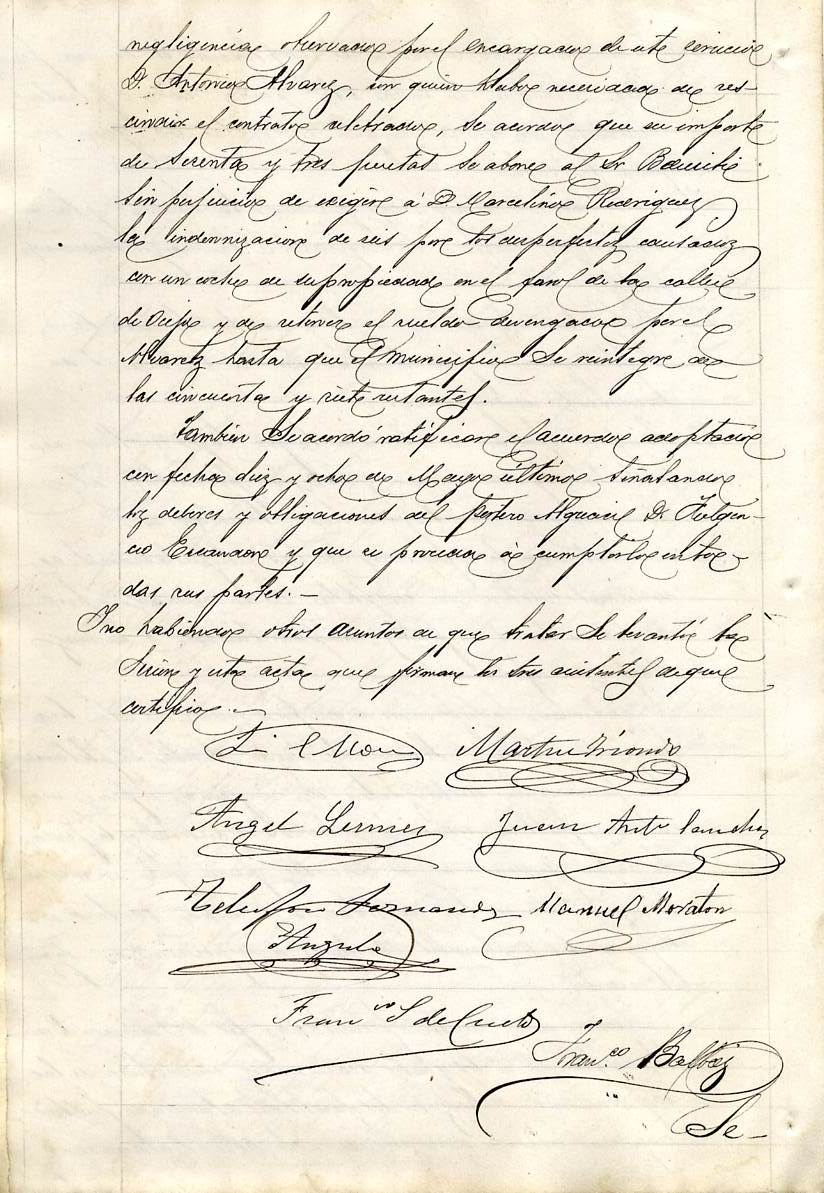 negligencia observada por el encargado de este servicio
D. Antonio Alvarez, con quien hubo necesidad de res-
cindir el contrato celebrado, se acordó que su importe
de sesenta y tres pesetas se abone al Sr
sin perjuicio de exigir á D Marcelino Rodriguez
la indemnizacion de seis por los desperfectos causados
con un coche de su propiedad en el farol de la calle
de y de retener el sueldo devengado por el
Alvarez hasta que el municipio se reintegre de
las cincuenta y siete restantes.
También se acordó ratificar el acuerdo adoptado
con fecha diez y ocho de Mayo último señalando
los deberes y obligaciones del Portero Alguacil D. Fulgen-
cio Escandon y que se proceda á cumplirlo en to-
das sus partes.-
Y no habiendo otros asuntos de que tratar se levantó la
sesion y esta acta que firman los Sres asistentes de que
certifico.-
Angel Juan Anto Sanchez
Fernandez Manuel Moraton
Angulo
Franco S de Cueto
Franco. Balbás
Se-